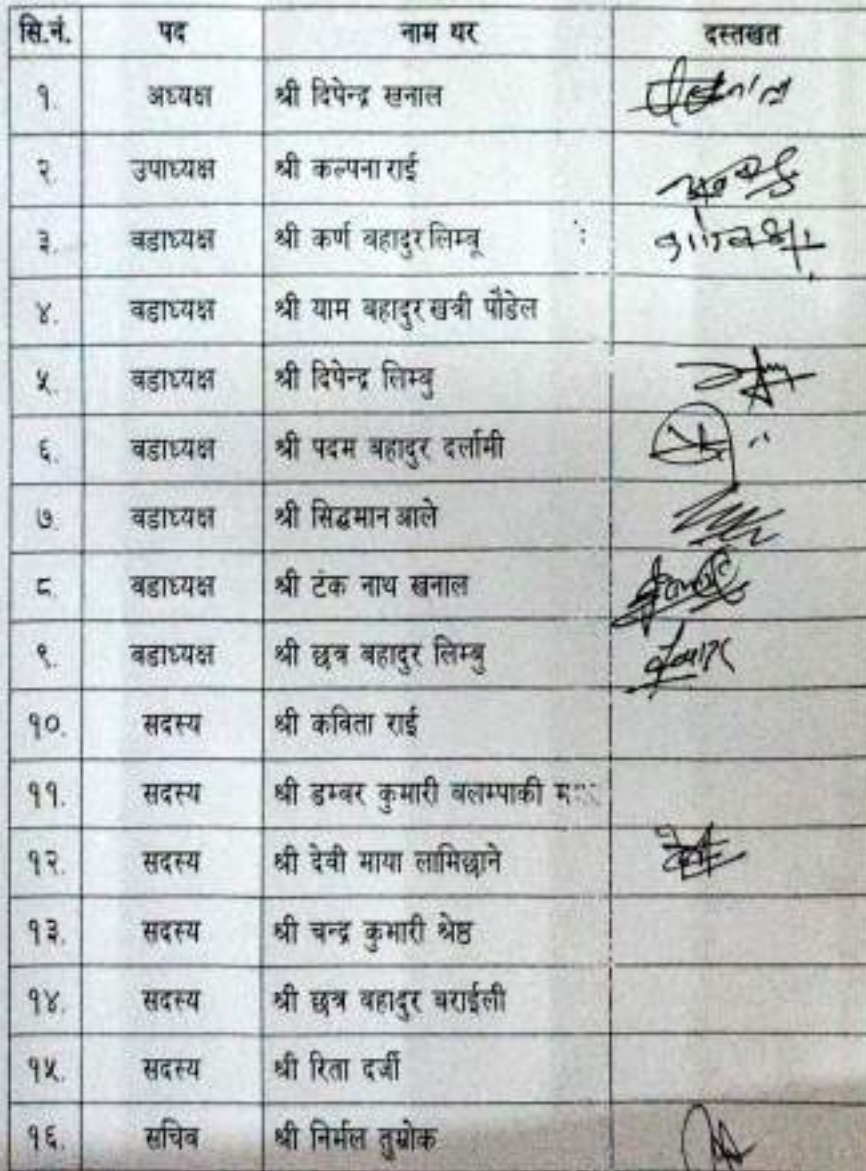 सि.नं. पद नाम थर दस्तखत
१. अध्यक्ष श्री दिपेन्द्र खनाल
२. उपाध्यक्ष श्री कल्पना राई
३. वडाध्यक्ष श्री कर्ण बहादुर लिम्बू
४. वडाध्यक्ष श्री याम बहादुर खत्री पौडेल
५. वडाध्यक्ष श्री दिपेन्द्र लिम्बु
६. वडाध्यक्ष श्री पदम बहादुर दर्लामी
७. वडाध्यक्ष श्री सिद्धमान आले
८. वडाध्यक्ष श्री टंक नाथ खनाल
९. वडाध्यक्ष श्री छत्र बहादुर लिम्बु
१०. सदस्य श्री कविता राई
११. सदस्य श्री डम्बर कुमारी वलम्पाकी
१२. सदस्य श्री देवी माया लामिछाने
१३. सदस्य श्री चन्द्र कुमारी श्रेष्ठ
१४. सदस्य श्री छत्र बहादुर बराईली
१५. सदस्य श्री रिता दर्जी
१६. सचिव श्री निर्मल तुम्रोक